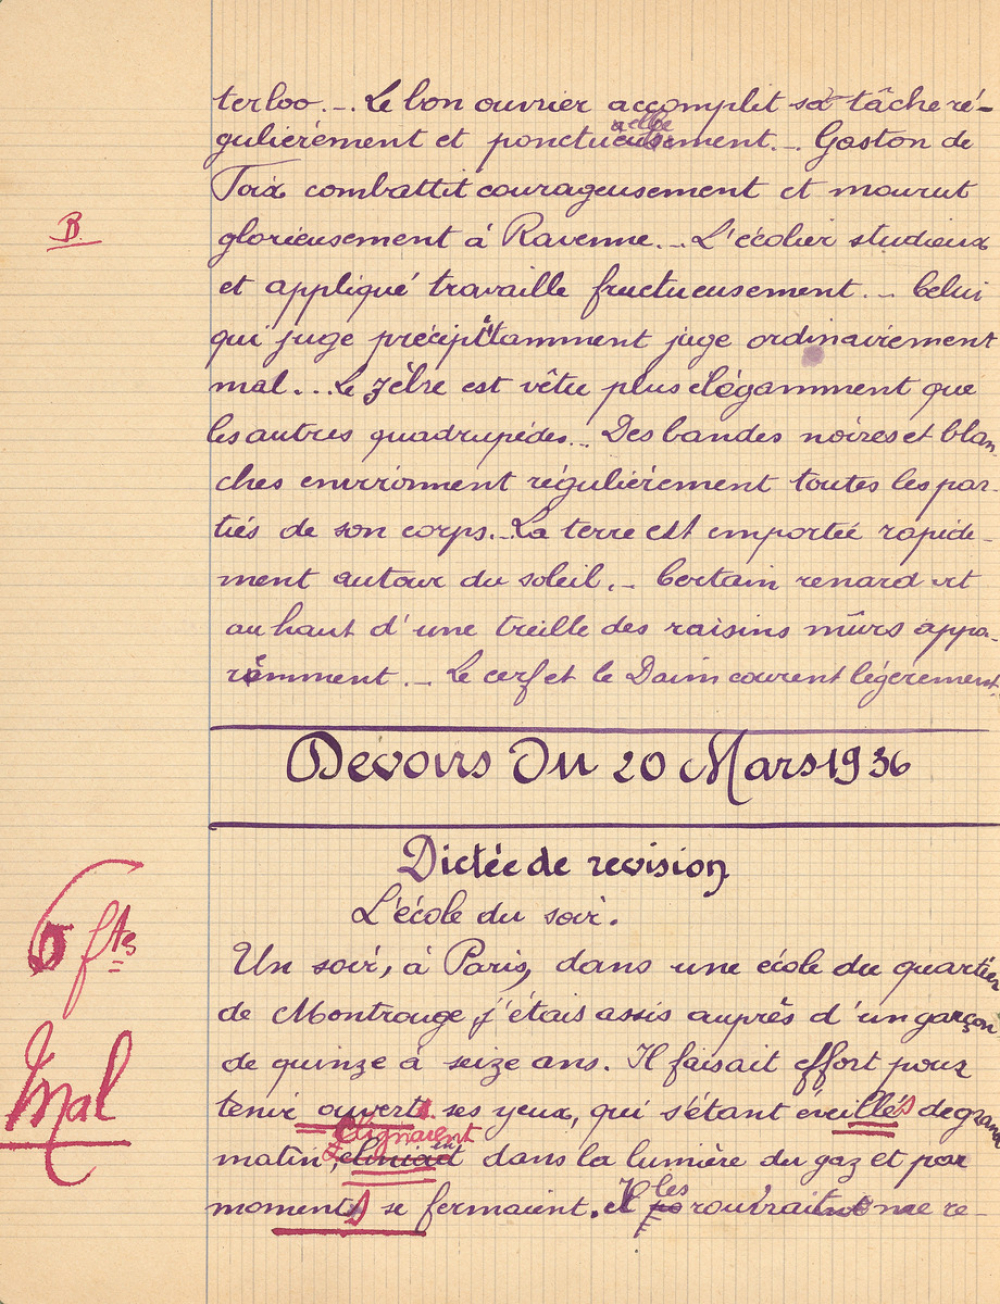 terloo. _ Le bon ouvrier accomplit sa tâche ré-
elle
gulièrement et ponctueusement. _ Gaston de
Foix combattit courageusement et mourut
B
glorieusement à Ravenne. _ L'écolier studieux
et appliqué travaille fructueusement. _ Celui
qui juge précipitamment juge ordinairement
mal. _ Le zèbre est vêtu plus élégamment que
les autres quadrupèdes. _ Des bandes noires et blan-
ches environnent régulièrement toutes les par-
ties de son corps. _ La terre est emportée rapide-
ment autour du soleil. _ Certain renard vit
au haut d'une treille des raisins mûrs appa-
remment. _ Le cerf et le Daim courent légèrement.
Devoirs Du 20 Mars 1936
Dictée de revision
L'école du soir.
6 ftes
Un soir, à Paris, dans une école du quartier
de Montrouge j'étais assis auprès d'un garçon
de quinze à seize ans. Il faisait effort pour
Mal
tenir ouverts ses yeux, qui s'étant éveillés de grand
clignaient
matin, dans la lumière du gaz et par
Il les
moments se fermaient. et rouvrait me re-